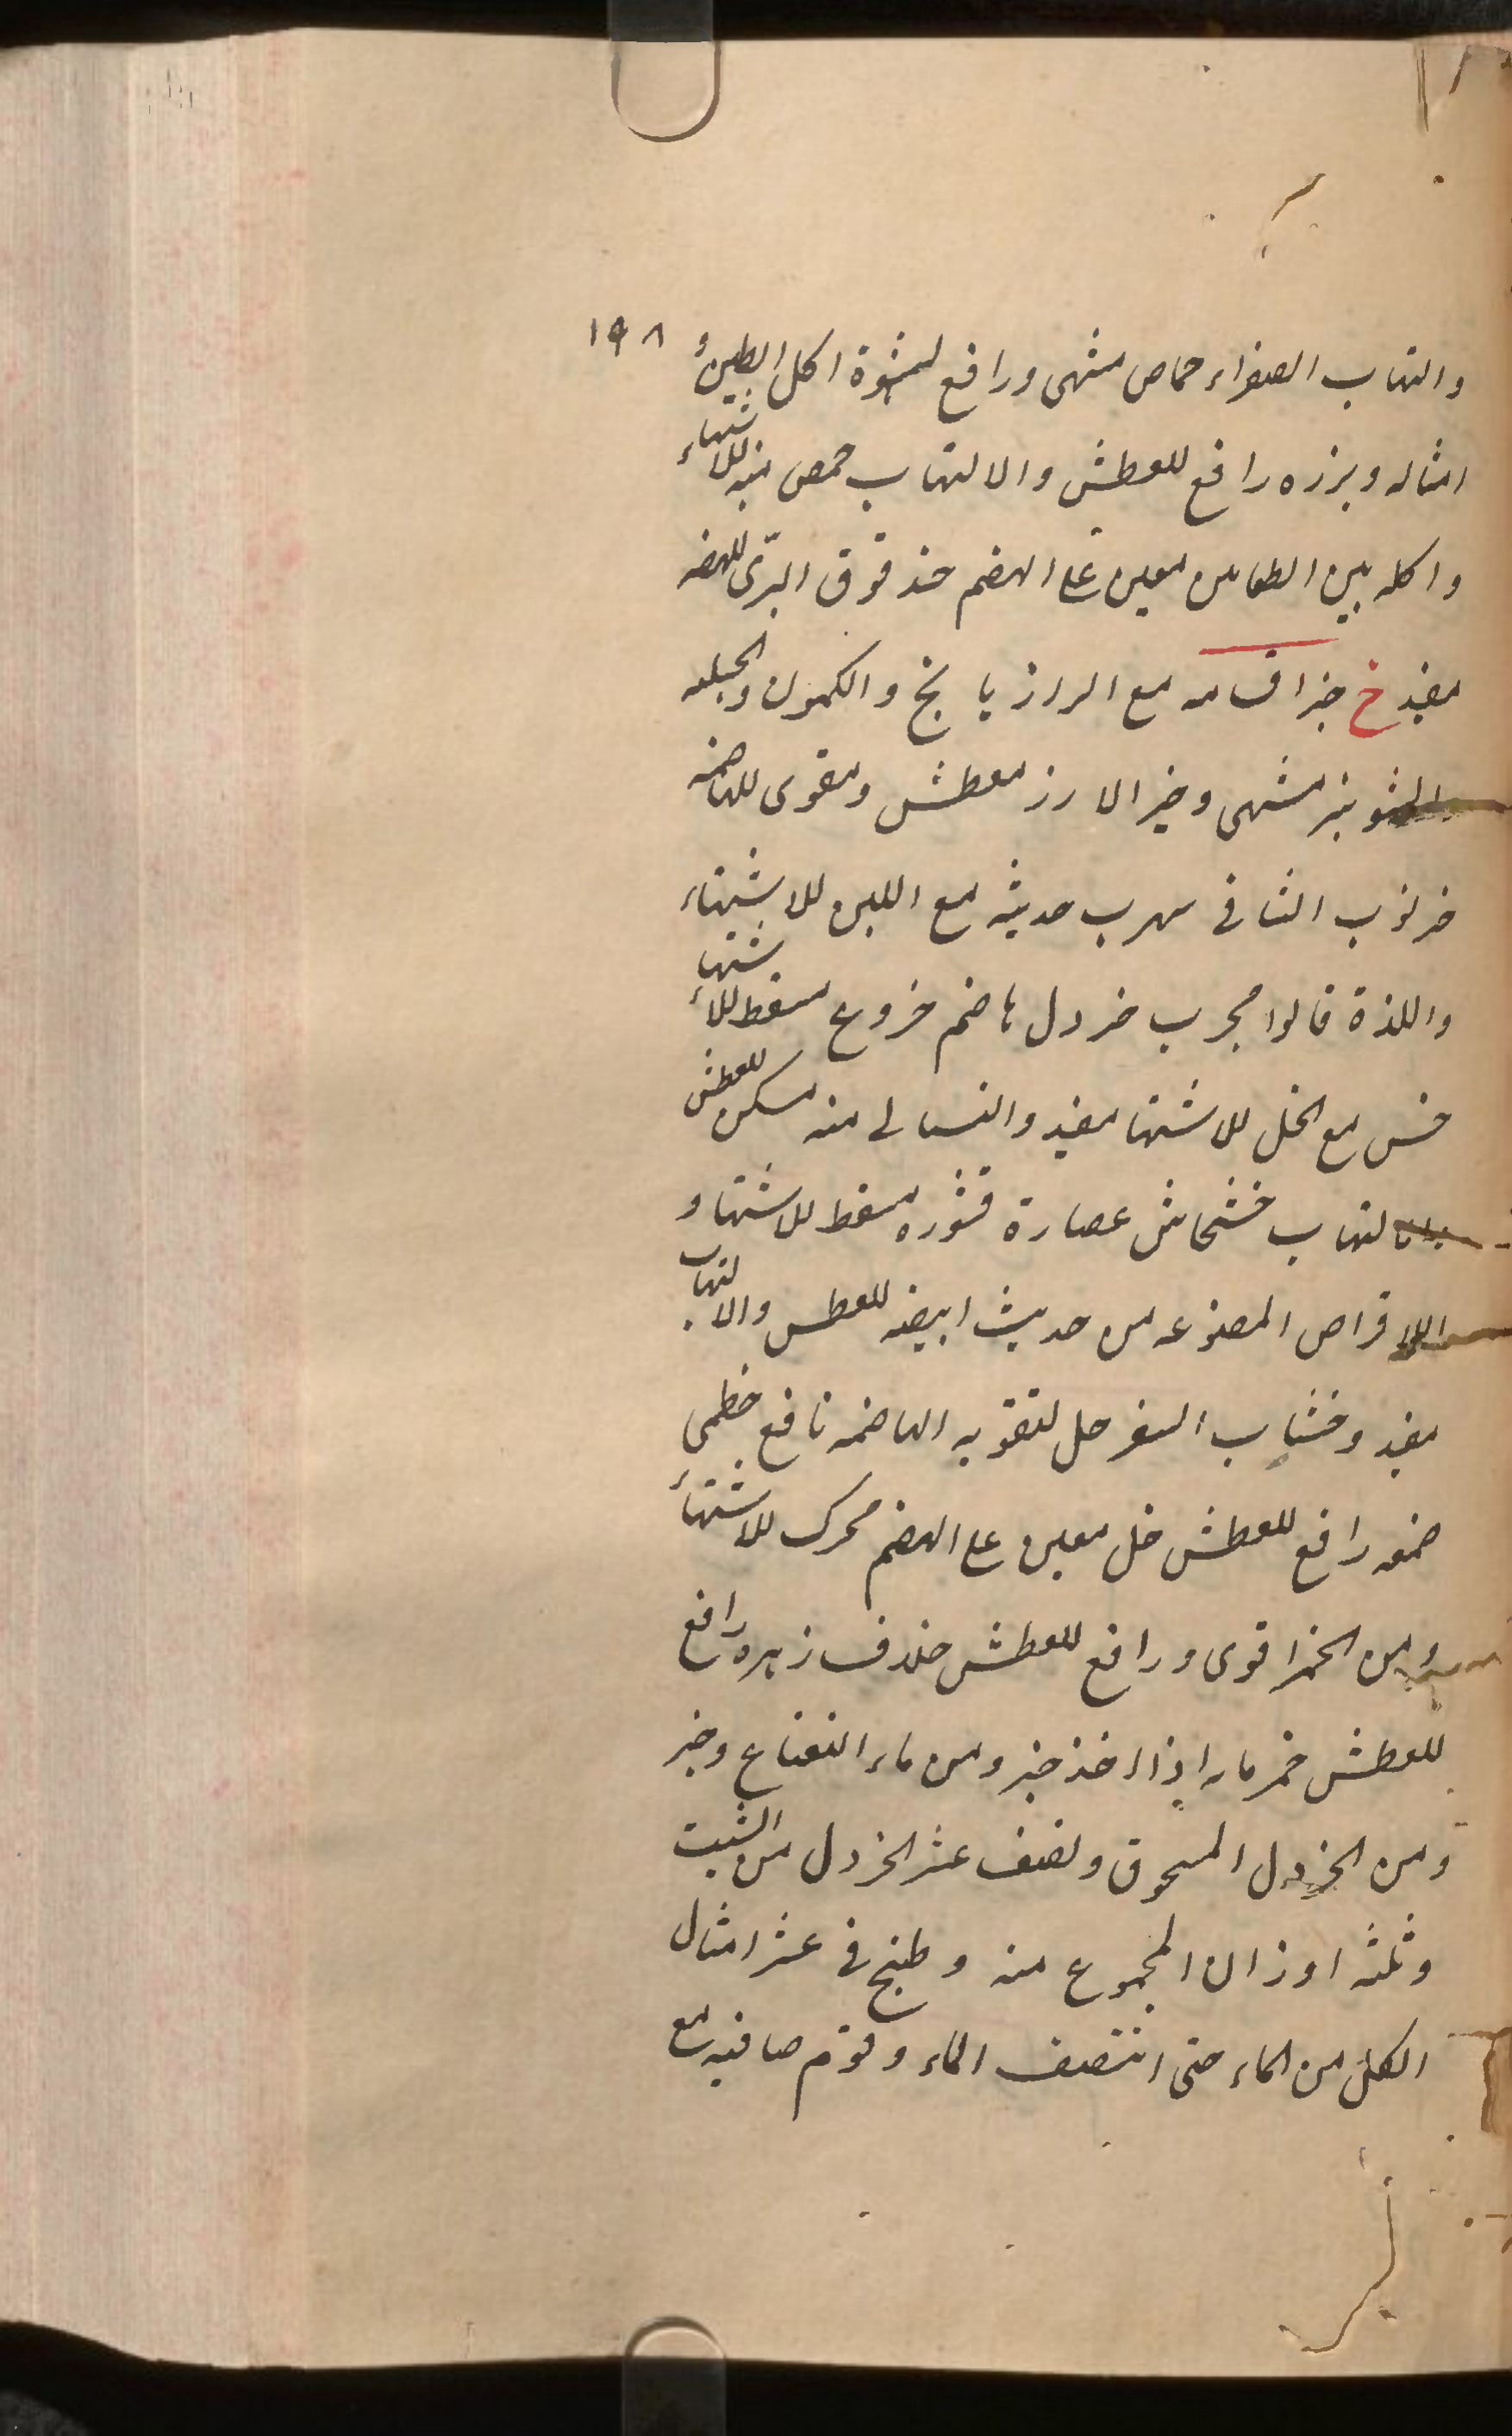 ١٩٨
والتهاب الصفراء حماص مشهى ورافع لشهوة اكل الطين و
امثاله وبزره رافع للعطش والالتهاب حمص منبه للاشتهاء
واكله بين الطعامين معين على الهضم حندقوق البرى للهضم
مفيد خ خبز مع الرازيانج والكمون
والشونيز مشهى وخبز الارز معطش ومقوى للهاضمه
خرنوب مع اللبن للاشتهاء
واللذة قالوا مجرب خردل هاضم خروع مسقط للاشتهاء
خس مع الخل للاشتها مفيد منه مسكن للعطش
التهاب خشخاش عصارة قشوره مسقط للاشتها و
الاقراص المصنوعه من حديث ابيضه للعطس والالتهاب
مفيد وخشاب السفرجل لتقويه الهاضمه نافع خطمى
صمغه رافع للعطش خل معين على الهضم محرك للاشتهاء
ومن الخمر اقوى ورافع للعطش خلاف زهره رافع
للعطش خمر ماء اذا اخذ خبز ومن ماء النعناع وخبز
ومن الخردل المسحوق ونصف عشر الخردل من الشبت
وثلثه اوزان المجموع منه وطبخ فى عشر امثال
الكل من الماء حتى انتصف الماء وقوم صافيه مع